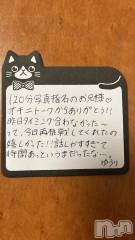 120分写真指名のお兄様♡
オキニトークからありがとう!!
昨日タイミング合わなかった〜
って、今日再挑戦してくれたの
嬉しかった!!話しがすぎて
時間あっというまだったな…
ゆうり